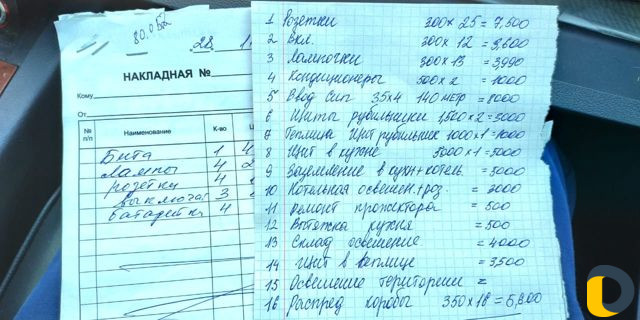 80.0
28
НАКЛАДНАЯ №
Кому
От
№ п/п Наименование К-во Ц
Бита 1 4
Лампы 4 2
розетки 4
выключат 3
батарейки 4
1 Розетки 300 x 25 = 7,500
2 Вкл. 300 x 12 = 3,600
3 Лампочки 300 x 13 = 3,990
4 Кондиционеры 500 x 2 = 1000
5 Ввод Сип 35x4 140 метр = 8000
6 Щиты рубильники 1,500 x 2 = 3000
7 Теплица Щит рубильник 1000 x 1 = 1000
8 Щит в кухне 3000 x 1 = 3000
9 Заземление в кухн + котель = 3000
10 Котельная освещен. + роз. = 2000
11 Ремонт прожектора = 500
12 Вытяжка кухня = 500
13 Склад освещение = 4000
14 Щит в теплице = 3,500
15 Освещение територии =
16 Распред коробы 350 x 16 = 5,600